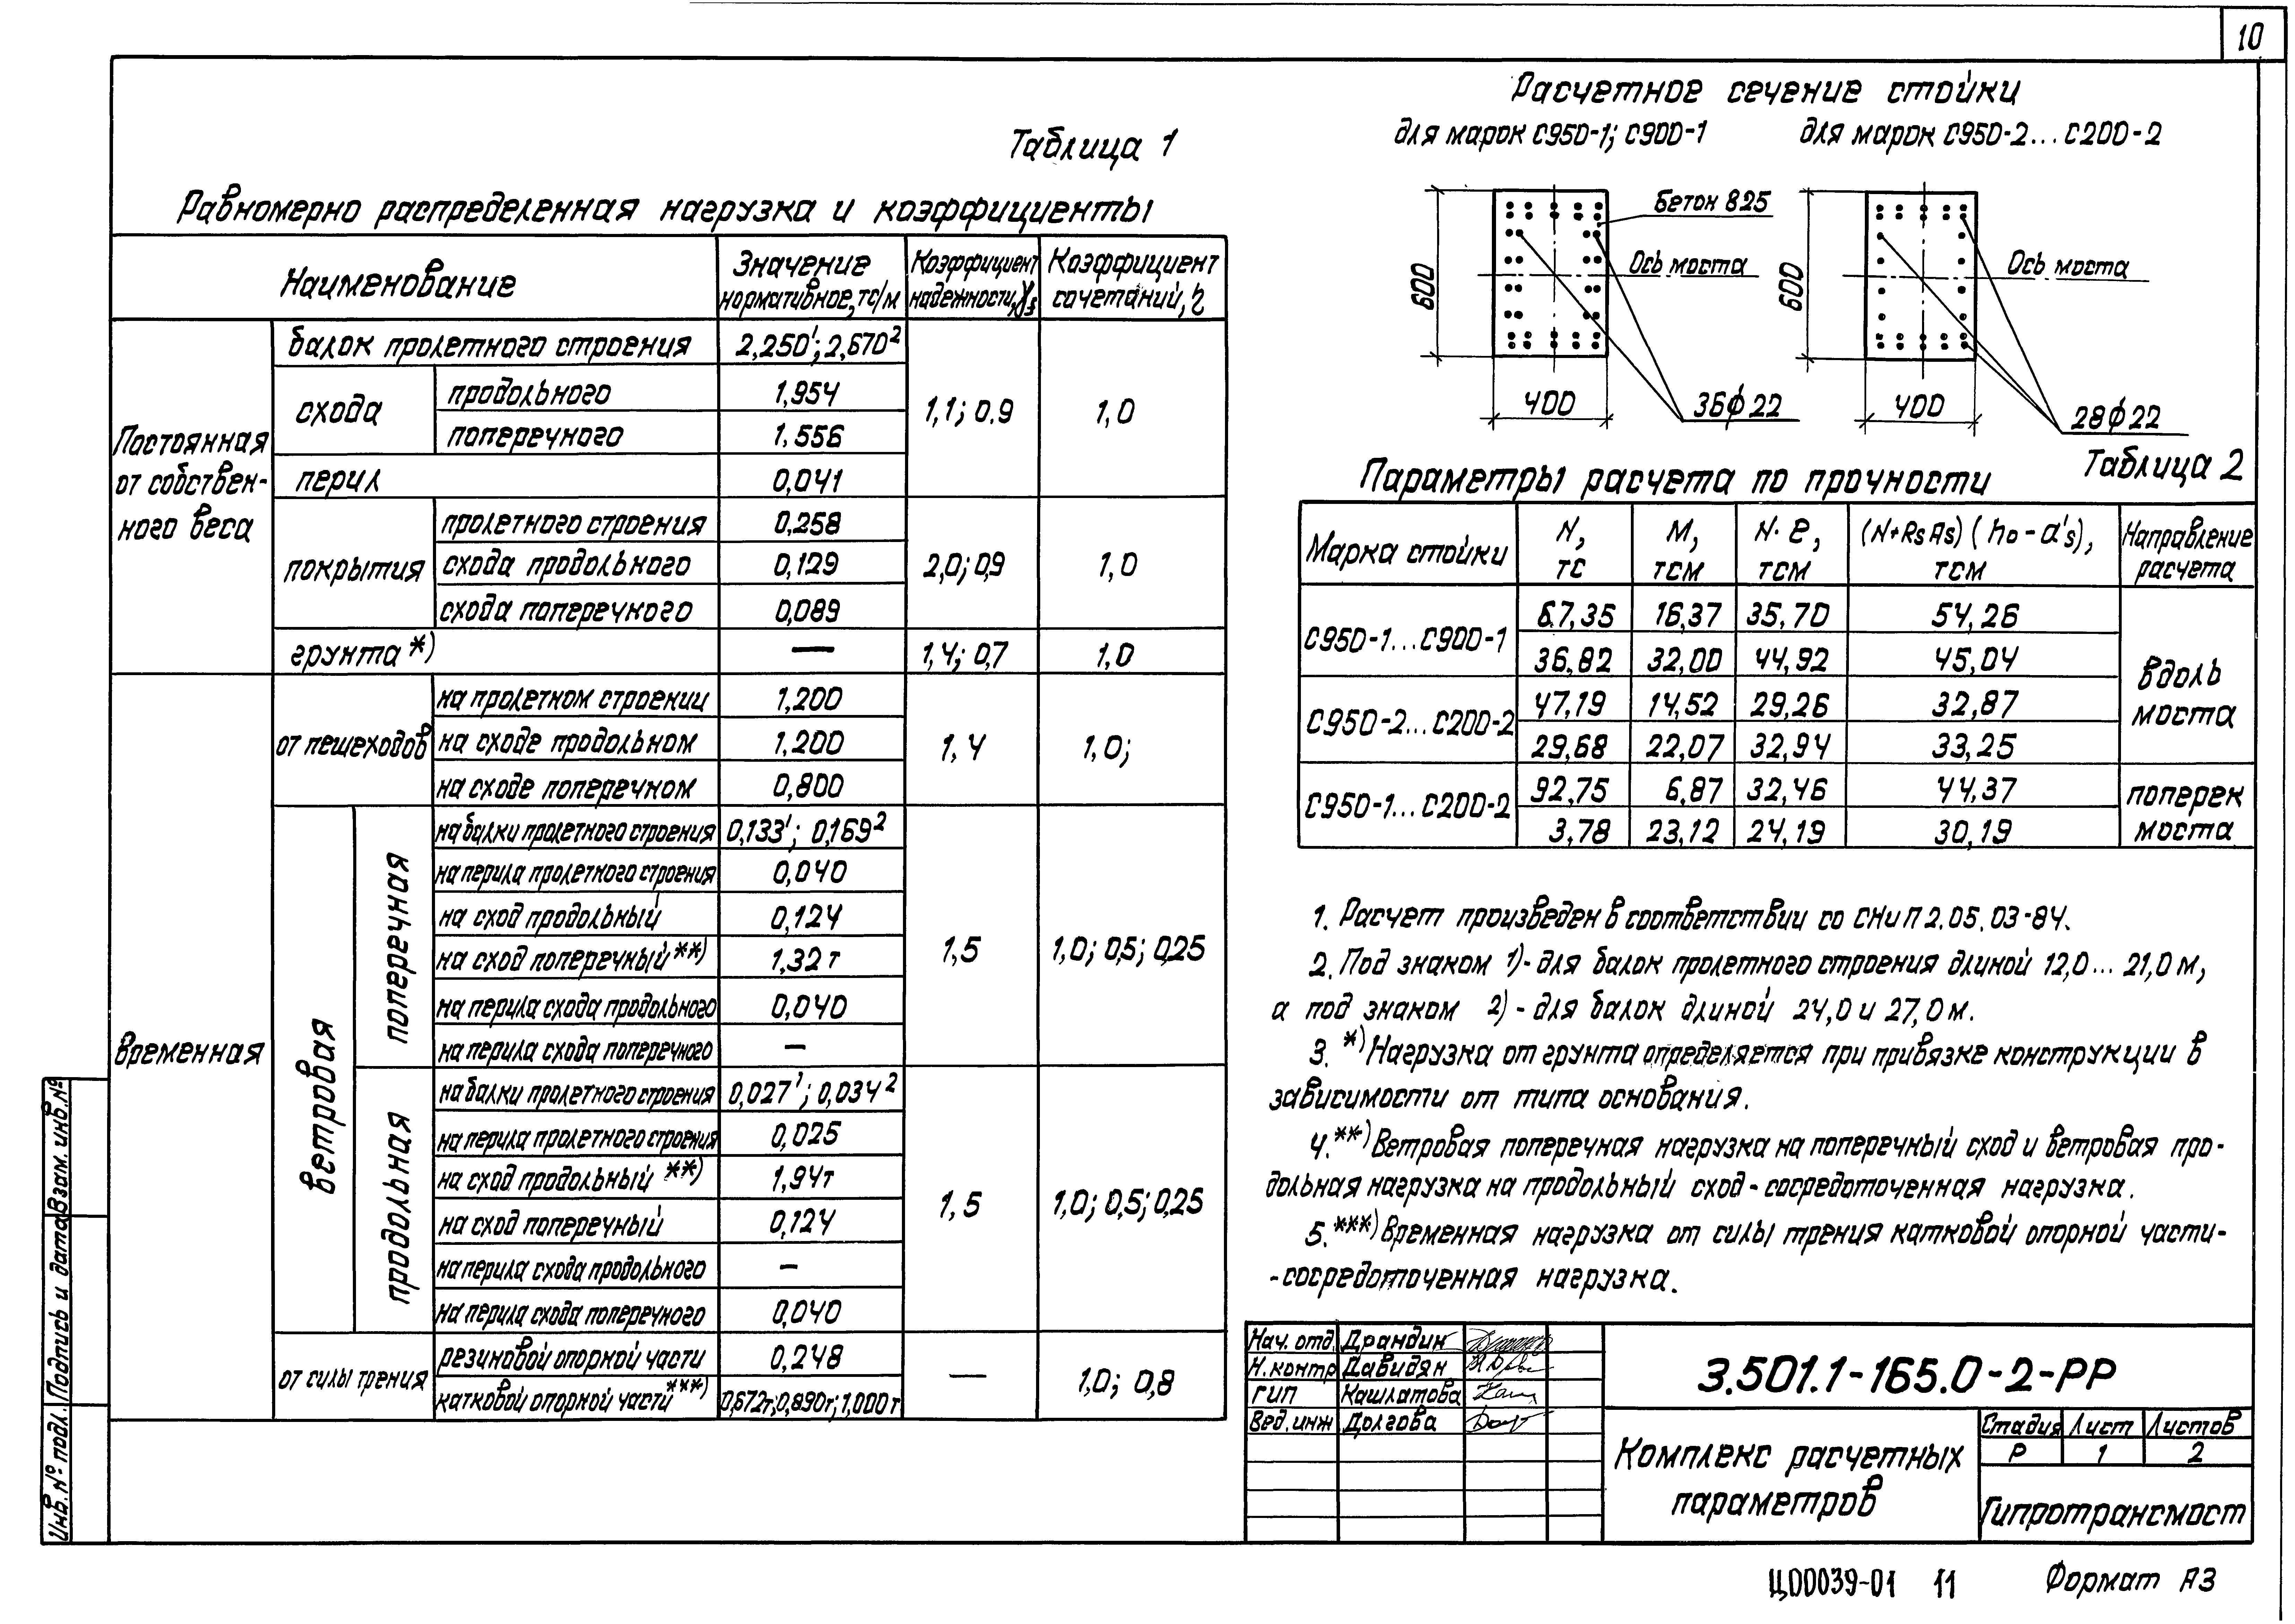 10
Таблица 1
Равномерно распределенная нагрузка и коэффициенты
Наименование | Значение нормативное, тс/м | Коэффициент надежности, γf | Коэффициент сочетаний, η
Постоянная от собственного веса
балок пролетного строения | 2,250¹; 2,670² | 1,1; 0.9 | 1,0
схода | продольного | 1,954
поперечного | 1,556
перил | 0,041
покрытия | пролетного строения | 0,258 | 2,0; 0,9 | 1,0
схода продольного | 0,129
схода поперечного | 0,089
грунта *) | — | 1,4; 0,7 | 1,0
Временная
от пешеходов | на пролетном строении | 1,200 | 1,4 | 1,0;
на сходе продольном | 1,200
на сходе поперечном | 0,800
ветровая
поперечная | на балки пролетного строения | 0,133¹; 0,169² | 1,5 | 1,0; 0,5; 0,25
на перила пролетного строения | 0,040
на сход продольный | 0,124
на сход поперечный **) | 1,32 т
на перила схода продольного | 0,040
на перила схода поперечного | —
продольная | на балки пролетного строения | 0,027¹; 0,034² | 1,5 | 1,0; 0,5; 0,25
на перила пролетного строения | 0,025
на сход продольный **) | 1,94т
на сход поперечный | 0,124
на перила схода продольного | —
на перила схода поперечного | 0,040
от силы трения | резиновой опорной части | 0,248 | — | 1,0; 0,8
катковой опорной части ***) | 0,672т; 0,890т; 1,000т
Расчетное сечение стойки
для марок С950-1; С900-1
для марок С950-2...С200-2
Бетон В25
Ось моста
600
400
36ϕ22
Ось моста
600
400
28ϕ22
Таблица 2
Параметры расчета по прочности
Марка стойки | N, тс | M, тсм | N·e, тсм | (N+RsAs)(ho-a's), тсм | Направление расчета
С950-1...С900-1 | 67,35 | 16,37 | 35,70 | 54,26 | вдоль моста
36,82 | 32,00 | 44,92 | 45,04
С950-2...С200-2 | 47,19 | 14,52 | 29,26 | 32,87
29,68 | 22,07 | 32,94 | 33,25
С950-1...С200-2 | 92,75 | 6,87 | 32,46 | 44,37 | поперек моста
3,78 | 23,12 | 24,19 | 30,19
1. Расчет произведен в соответствии со СНиП 2.05.03-84.
2. Под знаком 1)- для балок пролетного строения длиной 12,0... 21,0 м,
а под знаком 2) - для балок длиной 24,0 и 27,0 м.
3. *) Нагрузка от грунта определяется при привязке конструкции в
зависимости от типа основания.
4. **) Ветровая поперечная нагрузка на поперечный сход и ветровая про-
дольная нагрузка на продольный сход - сосредоточенная нагрузка.
5. ***) Временная нагрузка от силы трения катковой опорной части-
-сосредоточенная нагрузка.
Нач. отд. Драндин
Н. контр Давидян
ГИП Кашлатова
Вед. инж Долгова
3.501.1-165.0-2-РР
Комплекс расчетных
параметров
Стадия Лист Листов
Р 1 2
Гипротрансмост
Инв. № подл. Подпись и дата Взам. инв. №
Ц00039-01 11
Формат А3